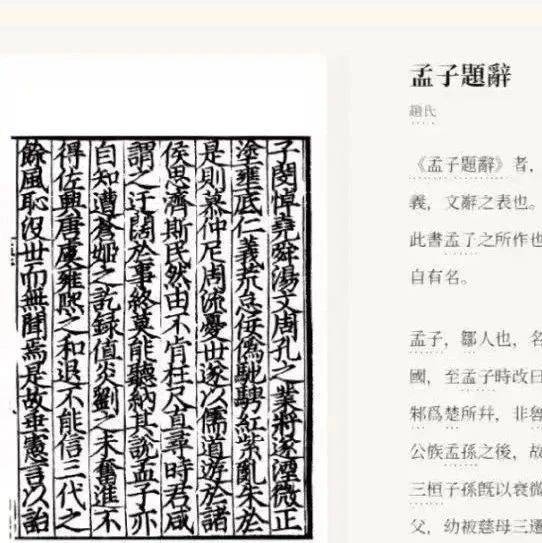 子閔悼堯舜湯文周孔之業將遂湮微正
塗壅底仁義荒怠佞僞馳騁紅紫亂朱於
是則慕仲尼周流憂世遂以儒道遊於諸
侯思濟斯民然由不肯枉尺直尋時君咸
謂之迂闊於事終莫能聽納其說孟子亦
自知遭蒼姬之訖録值炎劉之未奮進不
得佐興唐虞雍熙之和退不能信三代之
餘風恥沒世而無聞焉是故垂憲言以詒
孟子題辭
趙氏
《孟子題辭》者，
義，文辭之表也。
此書孟子之所作也
自有名。
孟子，鄒人也，名
國，至孟子時改曰
邾爲楚所幷，非魯
公族孟孫之後，故
三桓子孫既以衰微
父，幼被慈母三遷